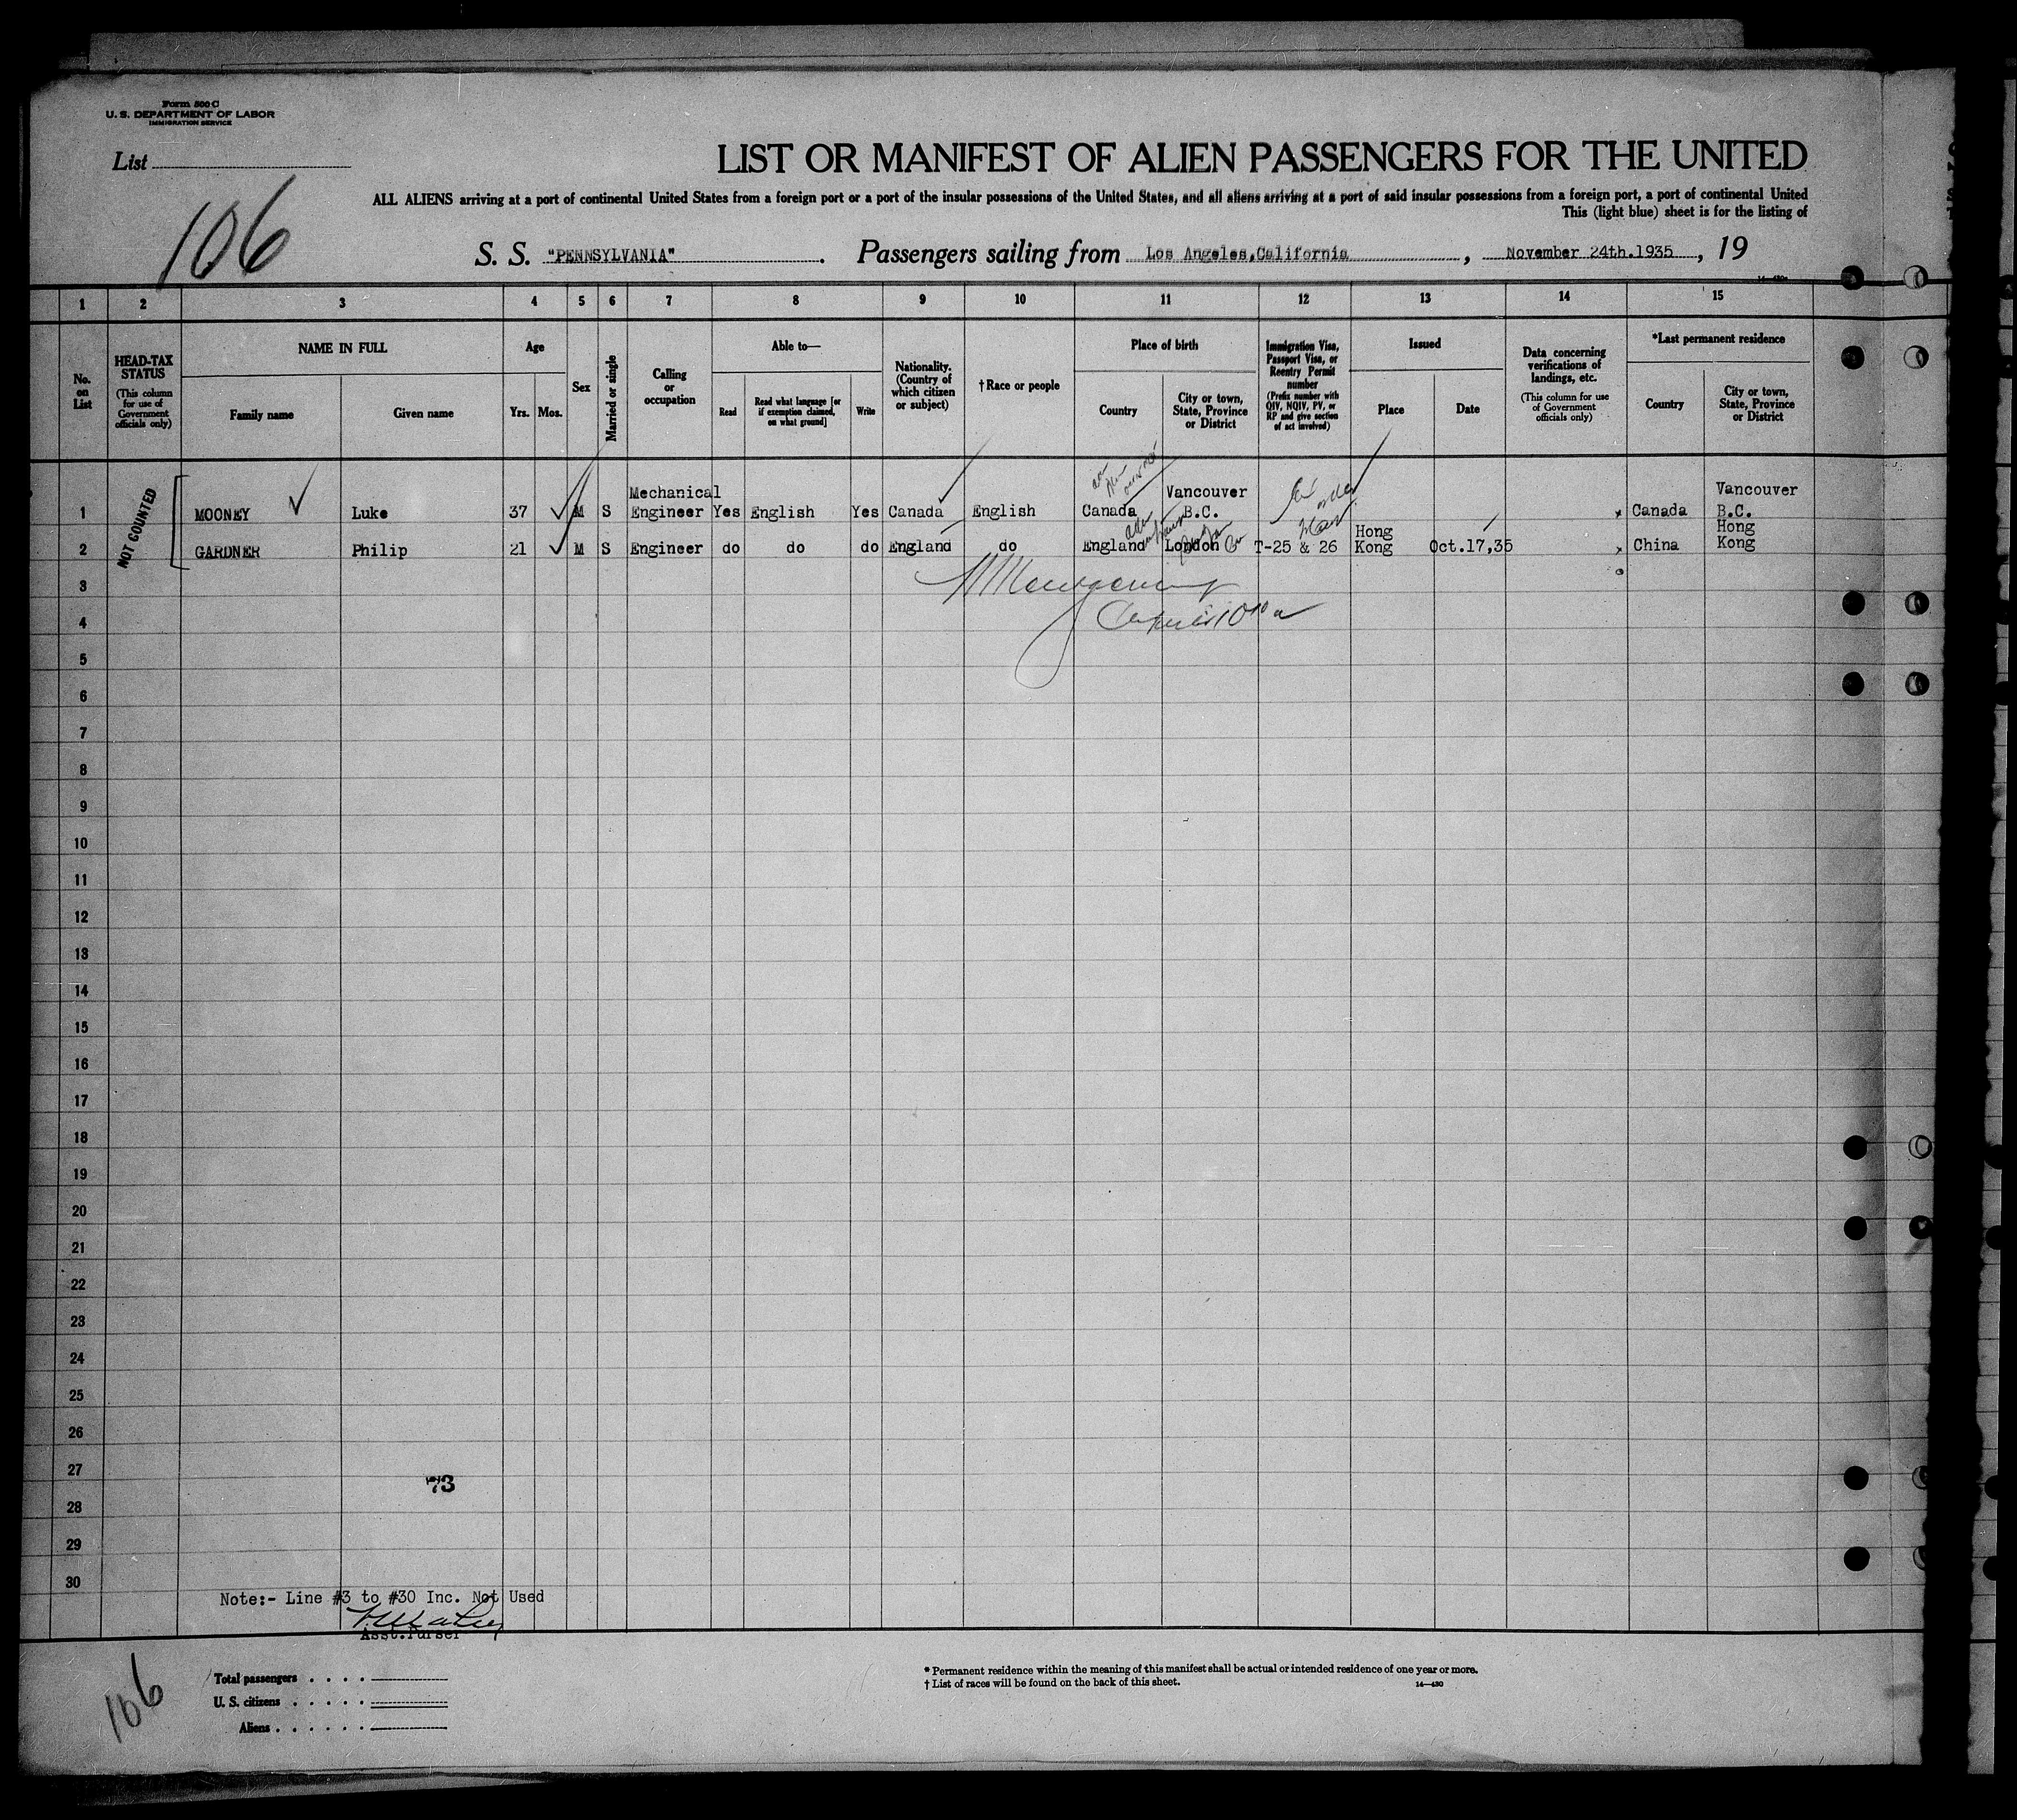 Form 500 C
U. S. DEPARTMENT OF LABOR
IMMIGRATION SERVICE
List
106
LIST OR MANIFEST OF ALIEN PASSENGERS FOR THE UNITED
ALL ALIENS arriving at a port of continental United States from a foreign port or a port of the insular possessions of the United States, and all aliens arriving at a port of said insular possessions from a foreign port, a port of continental United
This (light blue) sheet is for the listing of
S. S. "PENNSYLVANIA". Passengers sailing from Los Angeles,California, November 24th.1935, 19
1 2 3 4 5 6 7 8 9 10 11 12 13 14 15
No. on List
HEAD-TAX STATUS
(This column for use of Government officials only)
NAME IN FULL
Family name
Given name
Age
Yrs. Mos.
Sex
Married or single
Calling or occupation
Able to—
Read
Read what language [or if exemption claimed, on what ground]
Write
Nationality. (Country of which citizen or subject)
†Race or people
Place of birth
Country
City or town, State, Province or District
Immigration Visa, Passport Visa, or Reentry Permit number
(Prefix number with QIV, NQIV, PV, or RP and give section of act involved)
Issued
Place
Date
Data concerning verifications of landings, etc.
(This column for use of Government officials only)
*Last permanent residence
Country
City or town, State, Province or District
NOT COUNTED
1 MOONEY Luke 37 M S Mechanical Engineer Yes English Yes Canada English Canada Vancouver B.C. Canada Vancouver B.C.
2 GARDNER Philip 21 M S Engineer do do do England do England London T-25 & 26 Hong Kong Oct.17,35 China Hong Kong
3
4
5
6
7
8
9
10
11
12
13
14
15
16
17
18
19
20
21
22
23
24
25
26
27
73
28
29
30
Note:- Line #3 to #30 Inc. Not Used
Asst.Purser
106
Total passengers
U. S. citizens
Aliens
* Permanent residence within the meaning of this manifest shall be actual or intended residence of one year or more.
† List of races will be found on the back of this sheet.
14—430